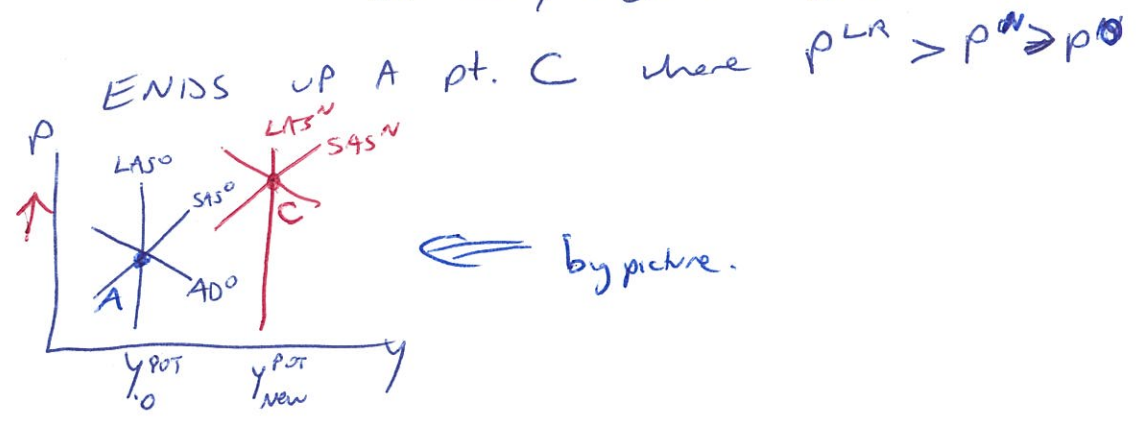 ENDS UP A pt. C where P^LR > P^N > P^0
P
LAS^N
SAS^N
LAS^0
SAS^0
C
by picture.
A
AD^0
y_0^POT
y_New^POT
y